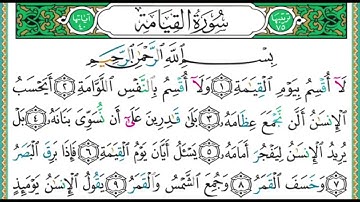 ترتيبها ٧٥
سُورَةُ الْقِيَامَةِ
آياتها ٤٠
بِسْمِ ٱللَّهِ ٱلرَّحْمَٰنِ ٱلرَّحِيمِ
لَآ أُقْسِمُ بِيَوْمِ ٱلْقِيَٰمَةِ ١ وَلَآ أُقْسِمُ بِٱلنَّفْسِ ٱللَّوَّامَةِ ٢ أَيَحْسَبُ
ٱلْإِنسَٰنُ أَلَّن نَّجْمَعَ عِظَامَهُۥ ٣ بَلَىٰ قَٰدِرِينَ عَلَىٰٓ أَن نُّسَوِّىَ بَنَانَهُۥ ٤ بَلْ
يُرِيدُ ٱلْإِنسَٰنُ لِيَفْجُرَ أَمَامَهُۥ ٥ يَسْـَٔلُ أَيَّانَ يَوْمُ ٱلْقِيَٰمَةِ ٦ فَإِذَا بَرِقَ ٱلْبَصَرُ
٧ وَخَسَفَ ٱلْقَمَرُ ٨ وَجُمِعَ ٱلشَّمْسُ وَٱلْقَمَرُ ٩ يَقُولُ ٱلْإِنسَٰنُ يَوْمَئِذٍ